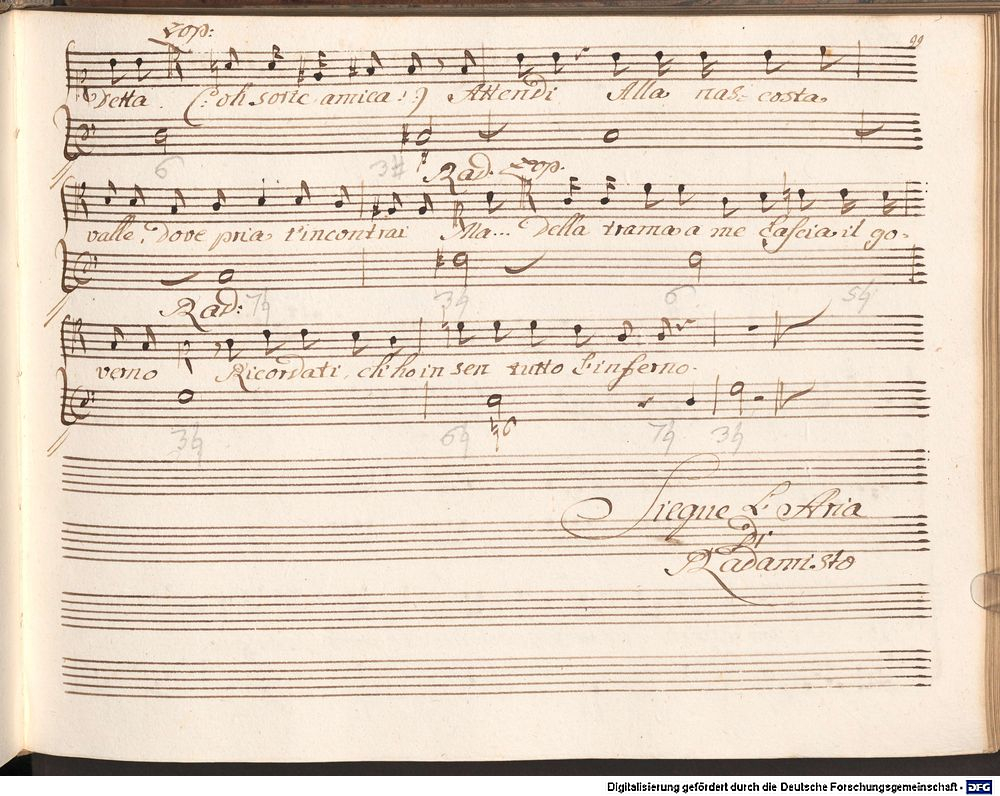 Zop:
99
detta. (: oh sorte amica! :) Attendi Alla nas- costa
6 3#
Rad. Zop.
valle, dove pria t'incontrai Ma... della trama a me Lascia il go-
7♮ 3♮ 6 5♮
Rad:
verno Ricordati, ch'ho in sen tutto l'inferno.
3♮ 6♮ ♮6 7♮ 3♮
Siegue L'Aria
Di
Radamisto
Digitalisierung gefördert durch die Deutsche Forschungsgemeinschaft - DFG